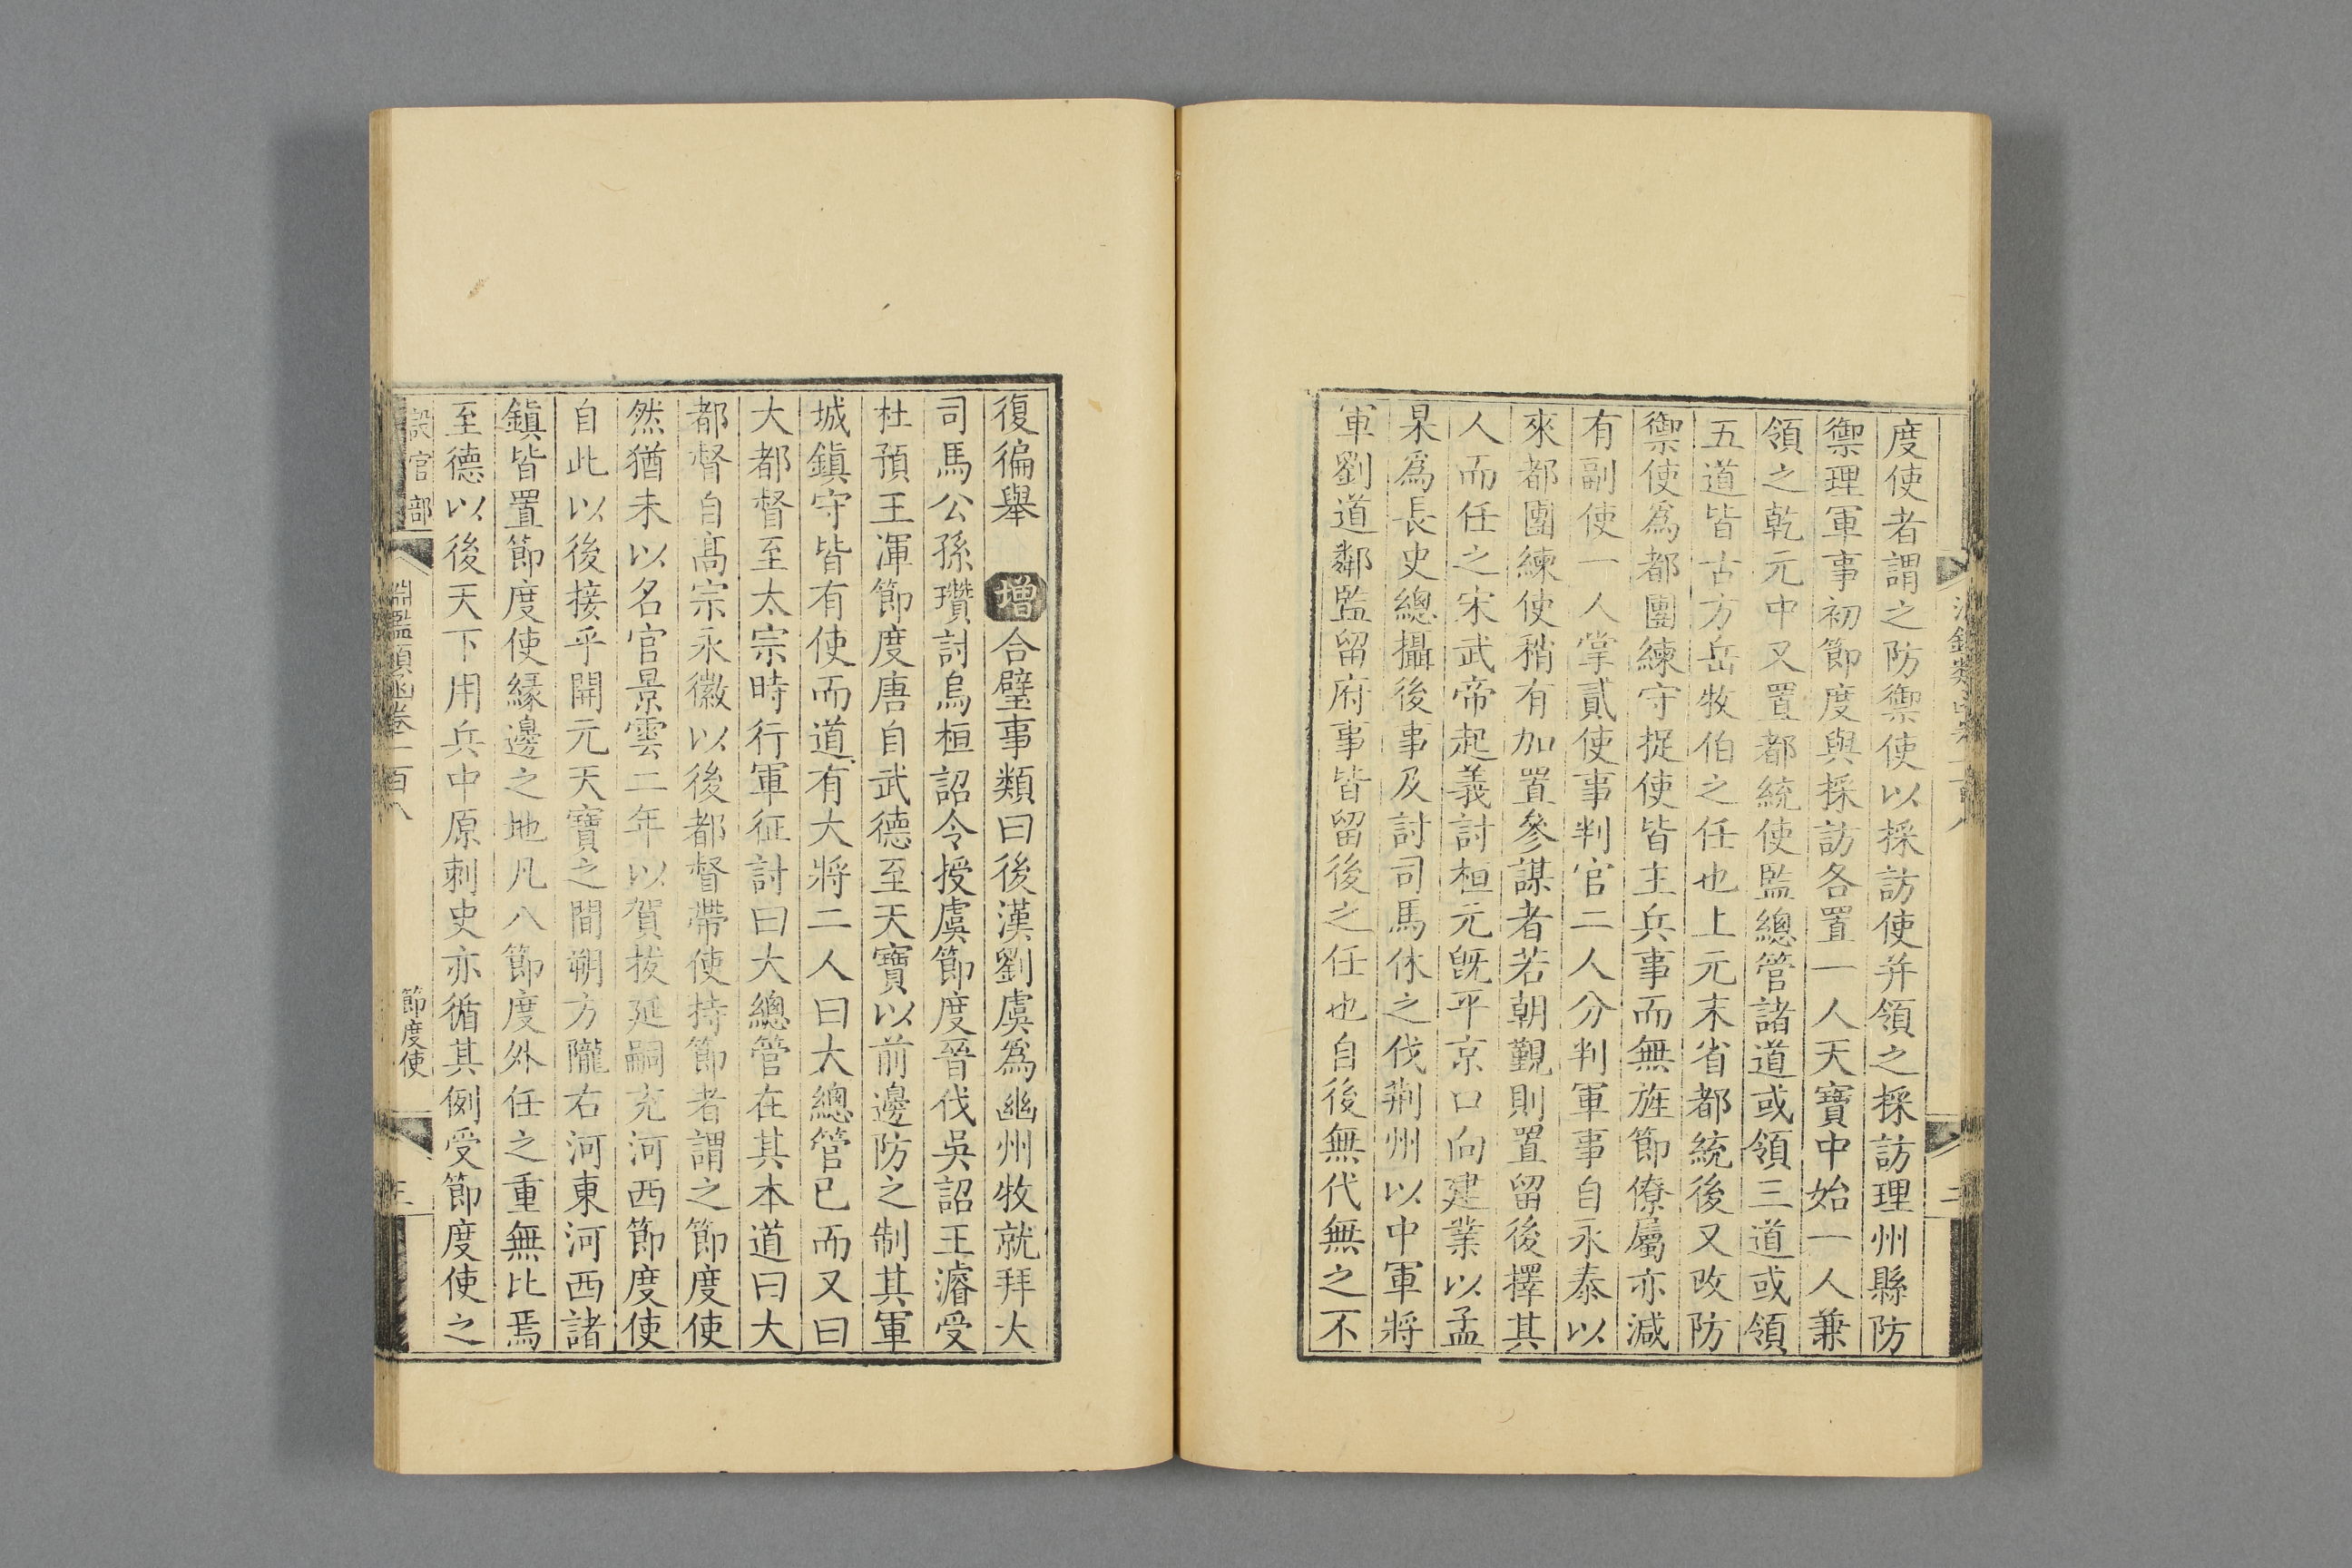 度使者謂之防禦使以採訪使并領之採訪理州縣防
禦理軍事初節度與採訪各置一人天寶中始一人兼
領之乾元中又置都統使監總管諸道或領三道或領
五道皆古方岳牧伯之任也上元末省都統後又改防
禦使為都團練守捉使皆主兵事而無旌節僚屬亦減
有副使一人掌貳使事判官二人分判軍事自永泰以
來都團練使稍有加置參謀者若朝覲則置留後擇其
人而任之宋武帝起義討桓元旣平京口向建業以孟
杲爲長史總攝後事及討司馬休之伐荆州以中軍將
軍劉道鄰監留府事皆留後之任也自後無代無之不
復徧舉 增合璧事類曰後漢劉虞爲幽州牧就拜大
司馬公孫瓚討烏桓詔令授虞節度晉伐吳詔王濬受
杜預王渾節度唐自武德至天寶以前邊防之制其軍
城鎮守皆有使而道有大將二人曰大總管已而又曰
大都督至太宗時行軍征討曰大總管在其本道曰大
都督自高宗永徽以後都督帶使持節者謂之節度使
然猶未以名官景雲二年以賀拔延嗣充河西節度使
自此以後接乎開元天寶之間朔方隴右河東河西諸
鎮皆置節度使緣邊之地凡八節度外任之重無比焉
至德以後天下用兵中原刺史亦循其例受節度使之
設官部 淵鑑類函卷一百八 節度使 三